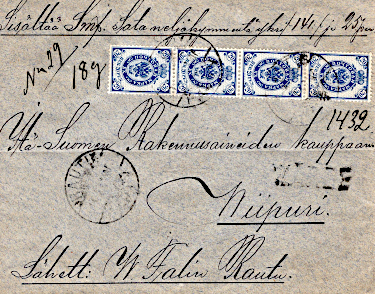 Sisältää Smk. Sata neljäkymmentäyksi 141 ja 25 pen
No 29
18 g
1432
Itä-Suomen Rakennusaineiden kauppaan
RAUTU
Wiipuri.
Lähett: W Falin Rautu.